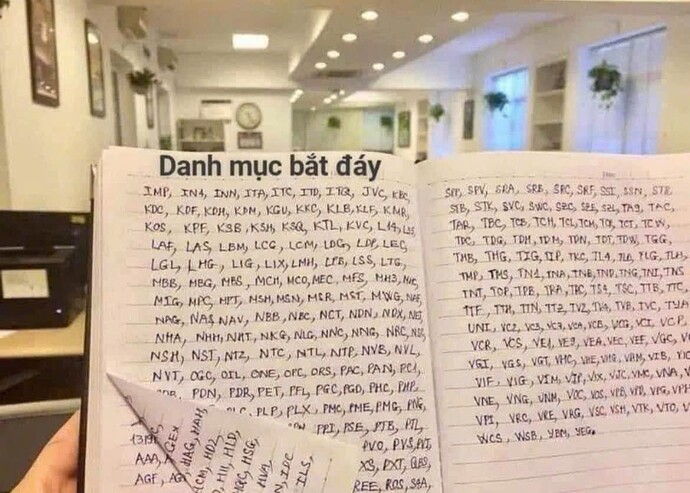 Danh mục bắt đáy
IMP, IN4, INN, ITA, ITC, ITD, ITQ, JVC, KBC,
KDC, KDF, KDH, KDM, KGU, KKC, KLB, KLF, KMR,
KOS, KPF, KSB, KSH, KSQ, KTL, KVC, L14, LSS
LAF, LAS, LBM, LCG, LCM, LDG, LDP, LEC,
LGL, LHG, LIG, LIX, LMH, LPB, LSS, LTG
MBB, MBG, MBS, MCH, MCO, MEC, MFS, MHS,
MIG, MPC, MPT, MSH, MSN, MSR, MST, MWG,
NAG, NAS, NAV, NBB, NBC, NCT, NDN, NDX, NET,
NHA, NHH, NHT, NKG, NLG, NNC, NNG, NRC,
NSH, NST, NTZ, NTC, NTL, NTP, NVB, NVL,
NVT, OGC, OIL, ONE, OPC, ORS, PAC, PAN, PC1,
PDN, PDR, PET, PFL, PGC, PGD, PHC, PHP
PLC, PLP, PLX, PMC, PME, PMG, PNG,
PPI, PSE, PTB, PTL,
PVO, PVS, PVT,
PXT,
REE, ROS, SAA,
AAA
AGF
GEX
HAG, HAH,
HCM, HD2
HII, HLD
HSG,
IDC
ILS,
SPP, SPV, SRA, SRB, SRC, SRF, SSI, SSN, STB
STB, STK, SVC, SWC, SZC, SZE, SZL, TA9, TAC,
TAR, TBC, TCB, TCH, TCL, TCM, TCT, TCW,
TDC, TDG, TDH, TDM, TDN, TDT, TDW, TGG,
THB, THG, TIG, TIP, TKC, TL4, TLG, TLH,
TMP, TMS, TN1, TNA, TNB, TND, TNG, TNI, TNS
TNT, TOP, TPB, TRA, TRC, TS4, TSC, TTB, TTC,
TTF, TTH, TTZ, TV2, TV4, TVB, TVC, TYA
UNI, VC2, VC3, VC9, VCA, VCB, VCG, VCI, VCP,
VCR, VCS, VE1, VE9, VEA, VEC, VEF, VGC,
VGI, VGS, VGT, VHC, VHE, VHG, VHM, VIB, VIC
VIF, VIG, VIM, VIP, VIX, VJC, VMC, VNA,
VNE, VNG, VNM, VOC, VOS, VPB, VPD, VPG, VPH
VPI, VRC, VRE, VRG, VSC, VSH, VTK, VTO,
WCS, WSB, YBM, YEG.